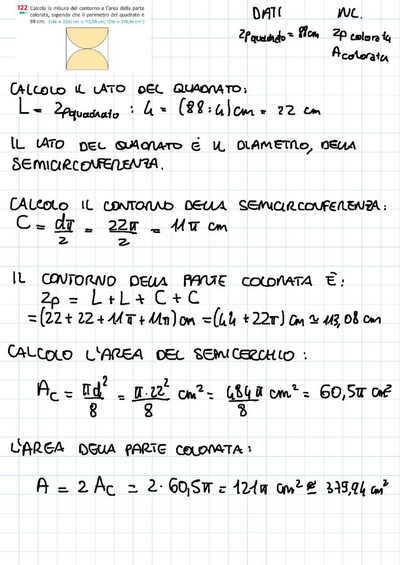 122 Calcola la misura del contorno e l'area della parte
colorata, sapendo che il perimetro del quadrato è
88 cm. [(44 + 22π) cm ≃ 113,08 cm; 121π ≃ 379,94 cm²]
DATI
2p quadrato = 88cm
INC.
2p colorata
A colorata
CALCOLO IL LATO DEL QUADRATO:
L = 2p quadrato : 4 = (88:4) cm = 22 cm
IL LATO DEL QUADRATO È IL DIAMETRO, DELLA
SEMICIRCONFERENZA.
CALCOLO IL CONTORNO DELLA SEMICIRCONFERENZA:
C = dπ/2 = 22π/2 = 11π cm
IL CONTORNO DELLA PARTE COLORATA È:
2p = L + L + C + C
= (22 + 22 + 11π + 11π) cm = (44 + 22π) cm ≃ 113,08 cm
CALCOLO L'AREA DEL SEMICERCHIO:
Ac = πd²/8 = π·22²/8 cm² = 484π/8 cm² = 60,5π cm²
L'AREA DELLA PARTE COLORATA:
A = 2 Ac = 2 · 60,5π = 121π cm² ≃ 379,94 cm²